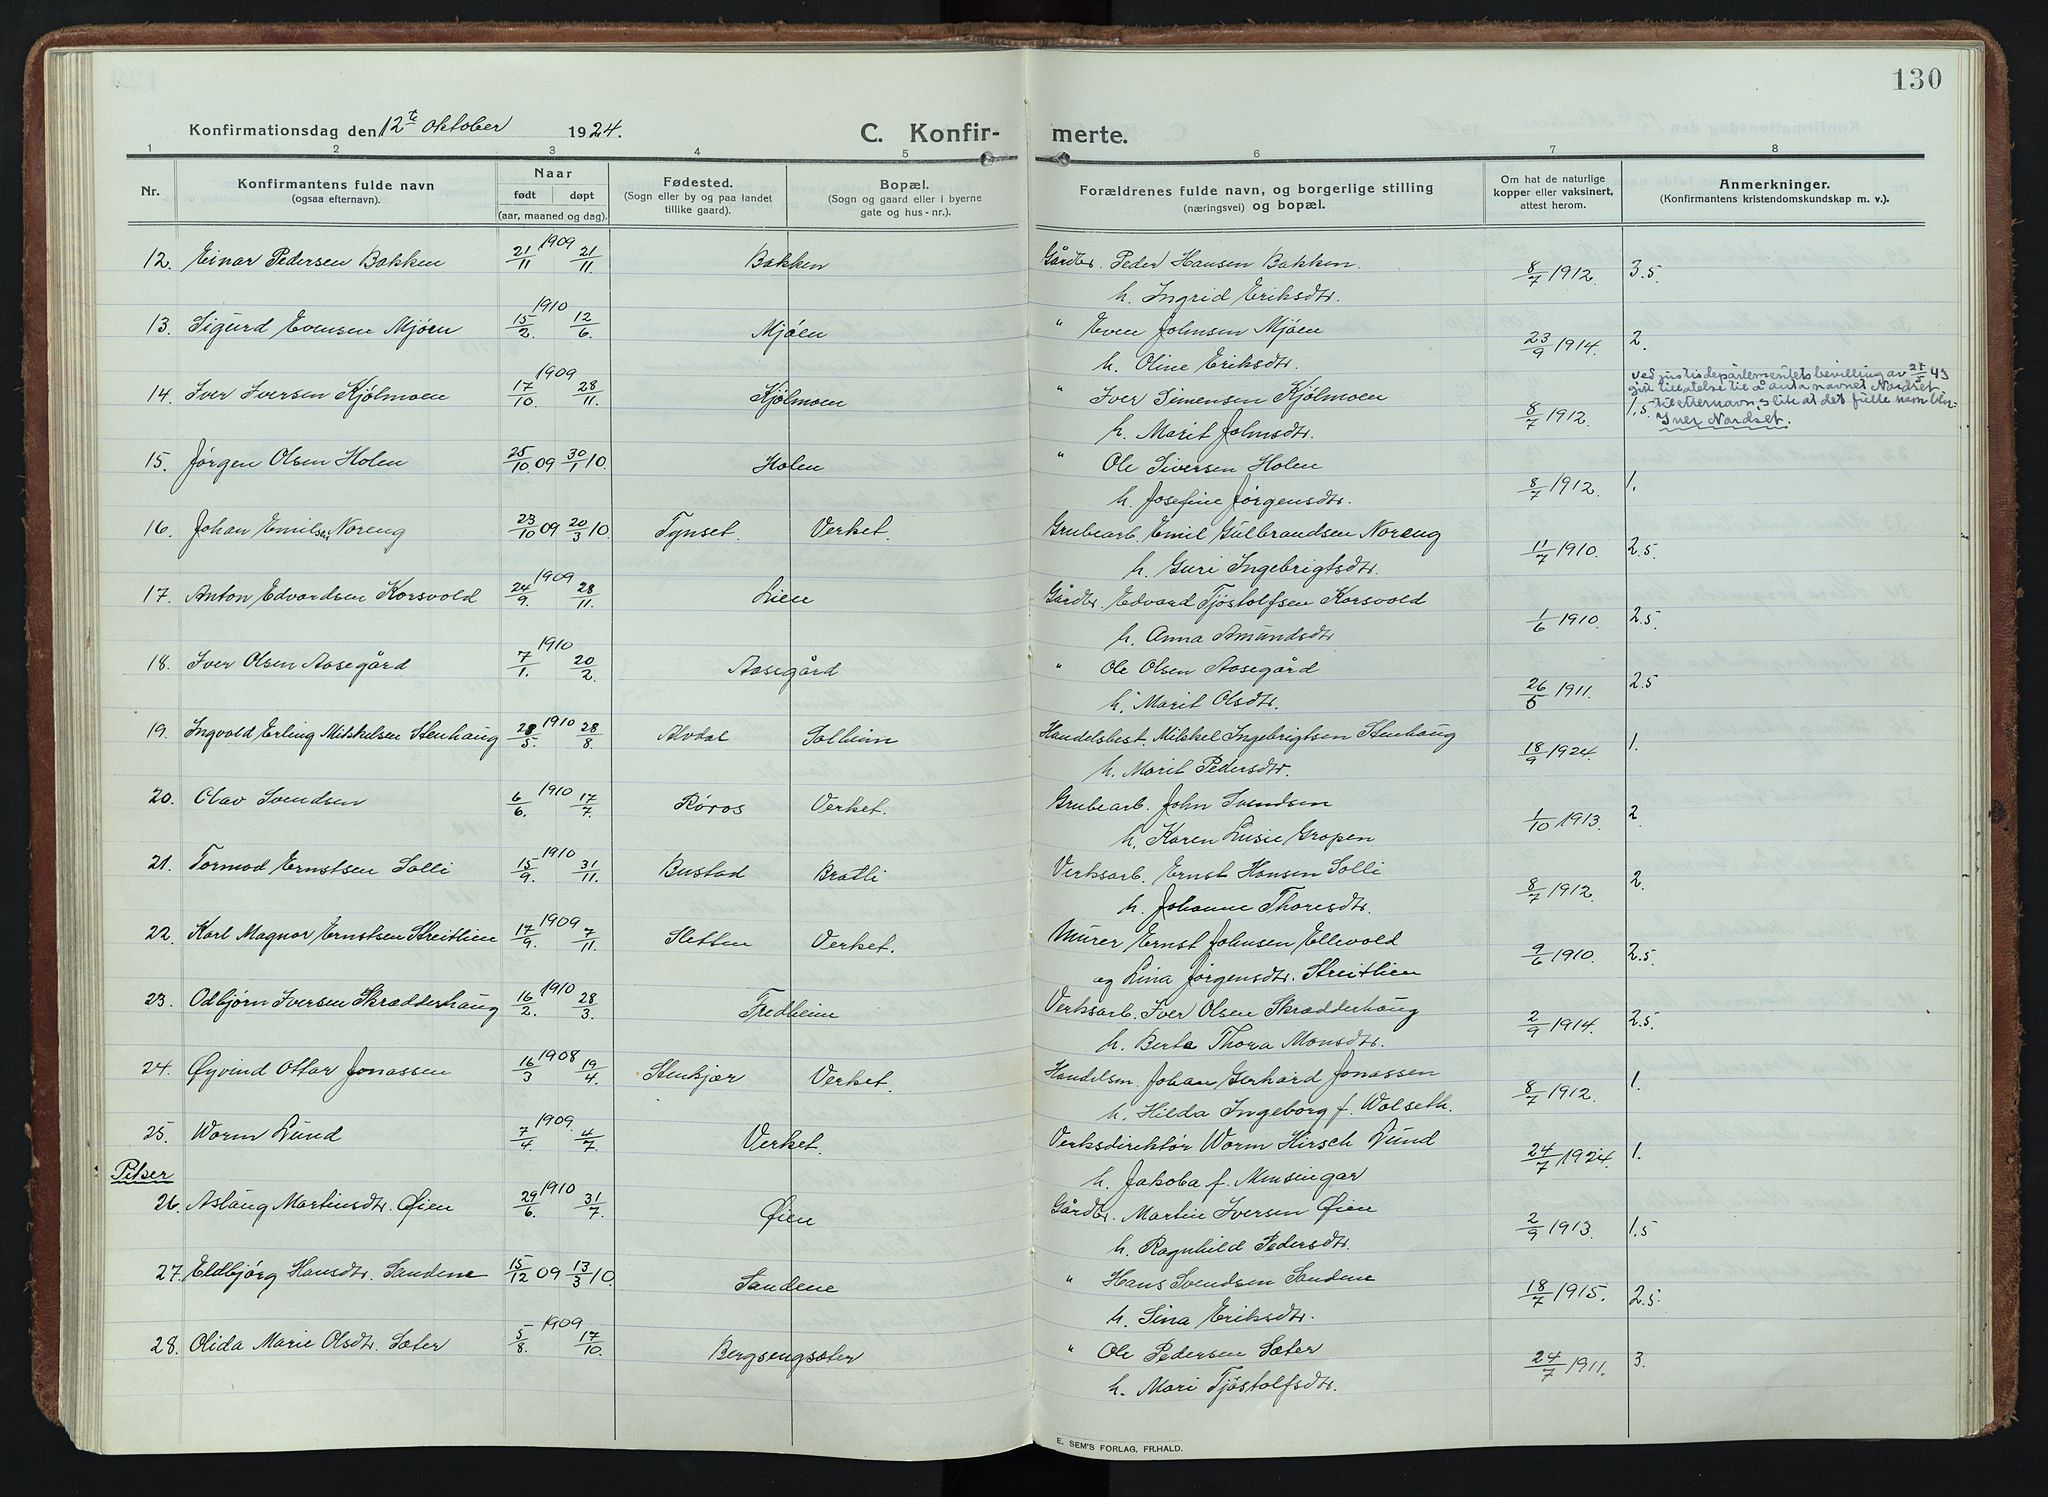 130
Konfirmationsdag den 12te oktober 1924. C. Konfir- merte.
1 2 3 4 5 6 7 8
Nr. Konfirmantens fulde navn (ogsaa efternavn). Naar født døpt (aar, maaned og dag). Fødested. (Sogn eller by og paa landet tillike gaard). Bopæl. (Sogn og gaard eller i byerne gate og hus-nr.). Forældrenes fulde navn, og borgerlige stilling (næringsvei) og bopæl. Om hat de naturlige kopper eller vaksinert, attest herom. Anmerkninger. (Konfirmantens kristendomskundskap m. v.).
12. Einar Pedersen Bakken 21/11 1909 21/11 Bakken Gårdbr. Peder Hansen Bakken. 8/7 1912. 3.5
h. Ingrid Eriksdtr.
13. Sigurd Evensen Mjøen 15/2. 1910 12/6. Mjøen " Even Johnsen Mjøen 23/9 1914. 2.
h. Oline Eriksdtr.
ved justisdepartementets bevilling av 27/5 43
gitt tillatelse til å anta navnet Nordset
14. Iver Iversen Kjølmoen 17/10. 1909 28/11. Kjølmoen " Iver Simensen Kjølmoen 8/7 1912. 1.5 til etternavn, slik at det fulle navn blir
Iver Nordset.
h. Marit Johnsdtr.
15. Jørgen Olsen Holen 25/10. 09 30/1 10. Holen " Ole Siversen Holen 8/7 1912. 1.
h. Josefine Jørgensdtr.
16. Johan Emilsen Noreng 23/10 09 20/3 10. Tynset. Verket. Grubearb. Emil Gulbrandsen Noreng 11/7 1910. 2.5.
h. Guri Ingebrigtsdtr.
17. Anton Edvardsen Korsvold 24/9. 1909 28/11. Lien Gårdbr. Edvard Tjøstolfsen Korsvold 1/6 1910. 2.5.
h. Anna Amundsdtr
18. Iver Olsen Aasegård 7/1. 1910 20/2. Aasegård " Ole Olsen Aasegård 26/6 1911. 2.5
h. Marit Olsdtr.
19. Ingvold Erling Mikkelsen Stenhaug 28/5. 1910 28/8. Alvdal Solheim Handelsbest. Mikkel Ingebrigtsen Stenhaug 18/9 1924. 1.
h. Marit Pedersdtr.
20. Olav Svendsen 6/6. 1910 17/7. Røros Verket. Grubearb. John Svendsen 1/10 1913. 2.
h. Karen Lusie Gropen
21. Tormod Ernstsen Solli 15/9. 1910 31/11. Bustad Bratli Verksarb. Ernst Hansen Solli 8/7 1912. 2.
h. Johanne Thoresdtr.
22. Karl Magnar Ernstsen Streitlien 17/9. 1909 7/11. Sletten Verket. Murer Ernst Johnsen Ellevold 9/6 1910. 2.5.
og Lina Jørgensdtr. Streitlien
23. Odbjørn Iversen Skrædderhaug 16/2. 1910 28/3. Fredheim Verksarb. Iver Olsen Skrædderhaug 2/9 1914. 2.5.
h. Berte Thora Monsdtr.
24. Øyvind Ottar Jonassen 16/3 1908 19/4. Stenkjær Verket. Handelsm. Johan Gerhard Jonassen 8/7 1912. 1.
h. Hilda Ingeborg f. Wolseth.
25. Worm Lund 7/4. 1909. 4/7. Verket. Verksdirektør Worm Hirsch Lund 24/7 1924. 1.
h. Jakoba f. Minsingar
Piker
26. Aslaug Martinsdtr. Øien 29/6. 1910 31/7. Øien Gårdbr. Martin Iversen Øien 2/9 1913. 1.5
h. Ragnhild Pedersdtr.
27. Eldbjørg Hansdtr. Sandene 15/12 09 13/3 10. Sandene " Hans Svendsen Sandene 18/7 1915. 2.5.
h. Sina Eriksdtr.
28. Olida Marie Olsdtr. Sæter 5/8. 1909 17/10. Bergsengsæter " Ole Pedersen Sæter 24/7 1911. 3.
h. Mari Tjøstolfsdtr.
E. SEM'S FORLAG, FR.HALD.